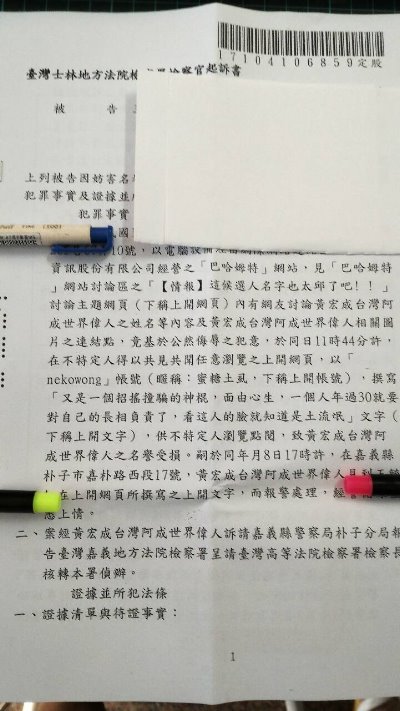 17104106859定股
臺灣士林地方法院檢察署檢察官起訴書
被 告
上列被告因妨害名
犯罪事實及證據並
犯罪事實
10號,以電腦設備
資訊股份有限公司經營之「巴哈姆特」網站,見「巴哈姆特
」網站討論區之「【情報】這候選人名字也太邱了吧!!」
討論主題網頁(下稱上開網頁)內有網友討論黃宏成台灣阿
成世界偉人之姓名等內容及黃宏成台灣阿成世界偉人相關圖
片之連結點,竟基於公然侮辱之犯意,於同日11時44分許,
在不特定人得以共見共聞任意瀏覽之上開網頁,以「
nekowong」帳號(暱稱:蜜糖土風,下稱上開帳號),撰寫
「又是一個招搖撞騙的神棍,面由心生,一個人年過30就要
對自己的長相負責了,看這人的臉就知道是土流氓」文字(
下稱上開文字),供不特定人瀏覽點閱,致黃宏成台灣阿
成世界偉人之名譽受損。嗣於同年月8日17時許,在嘉義縣
朴子市嘉朴路西段17號,黃宏成台灣阿成世界偉人見到
在上開網頁所撰寫之上開文字,而報警處理,經
悉上情。
二、案經黃宏成台灣阿成世界偉人訴請嘉義縣警察局朴子分局報
告臺灣嘉義地方法院檢察署呈請臺灣高等法院檢察署檢察長
核轉本署偵辦。
證據並所犯法條
一、證據清單與待證事實:
1